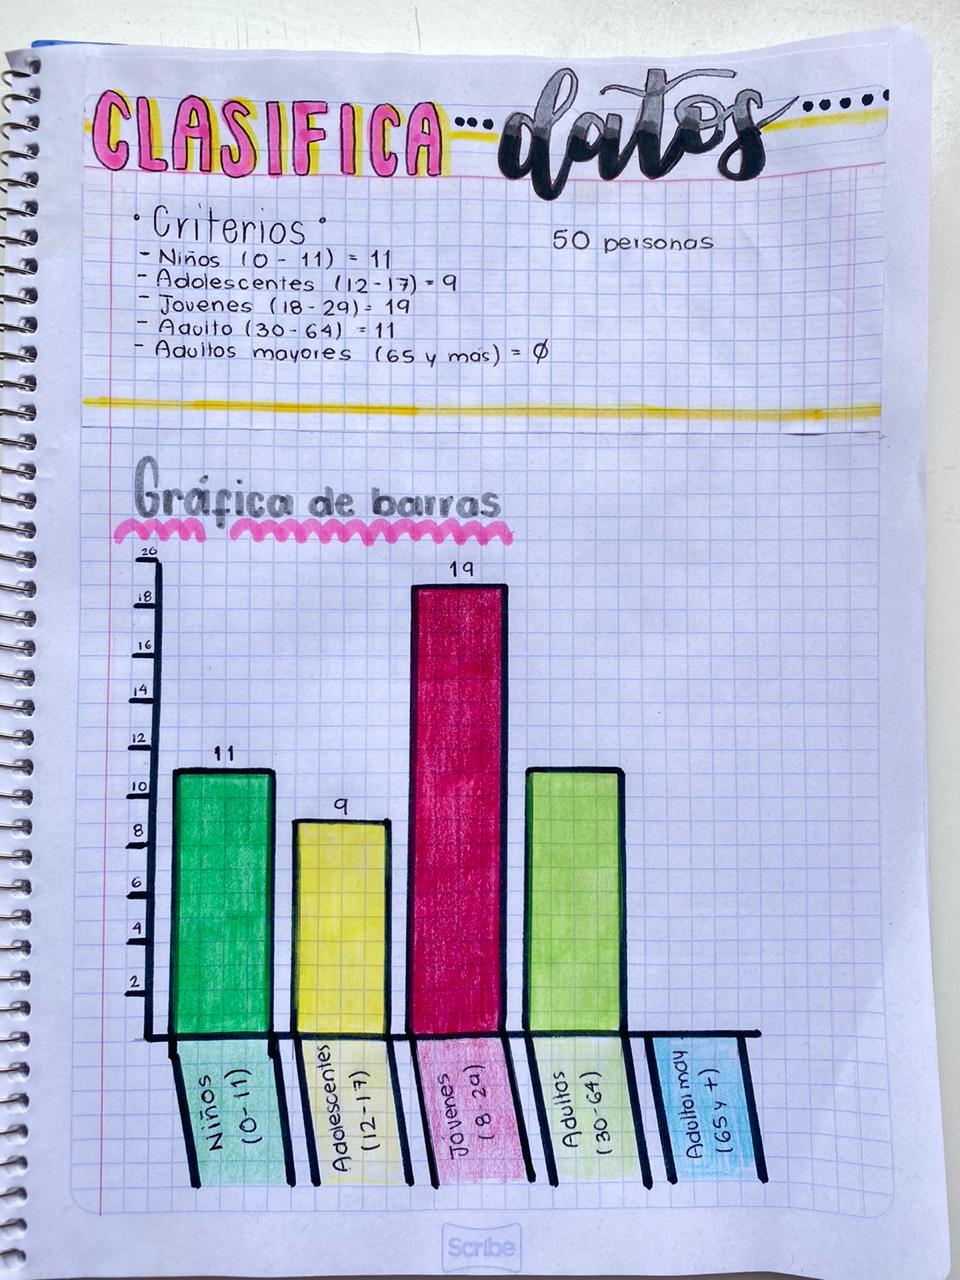 CLASIFICA datos
• Criterios •
50 personas
- Niños (0 - 11) = 11
- Adolescentes (12-17) = 9
- Jovenes (18-29) = 19
- Adulto (30-64) = 11
- Adultos mayores (65 y más) = Ø
Gráfica de barras
20
18
16
14
12
10
8
6
4
2
11
9
19
Niños
(0-11)
Adolescentes
(12-17)
Jóvenes
(8-29)
Adultos
(30-64)
Adultos may.
(65 y +)
Scribe